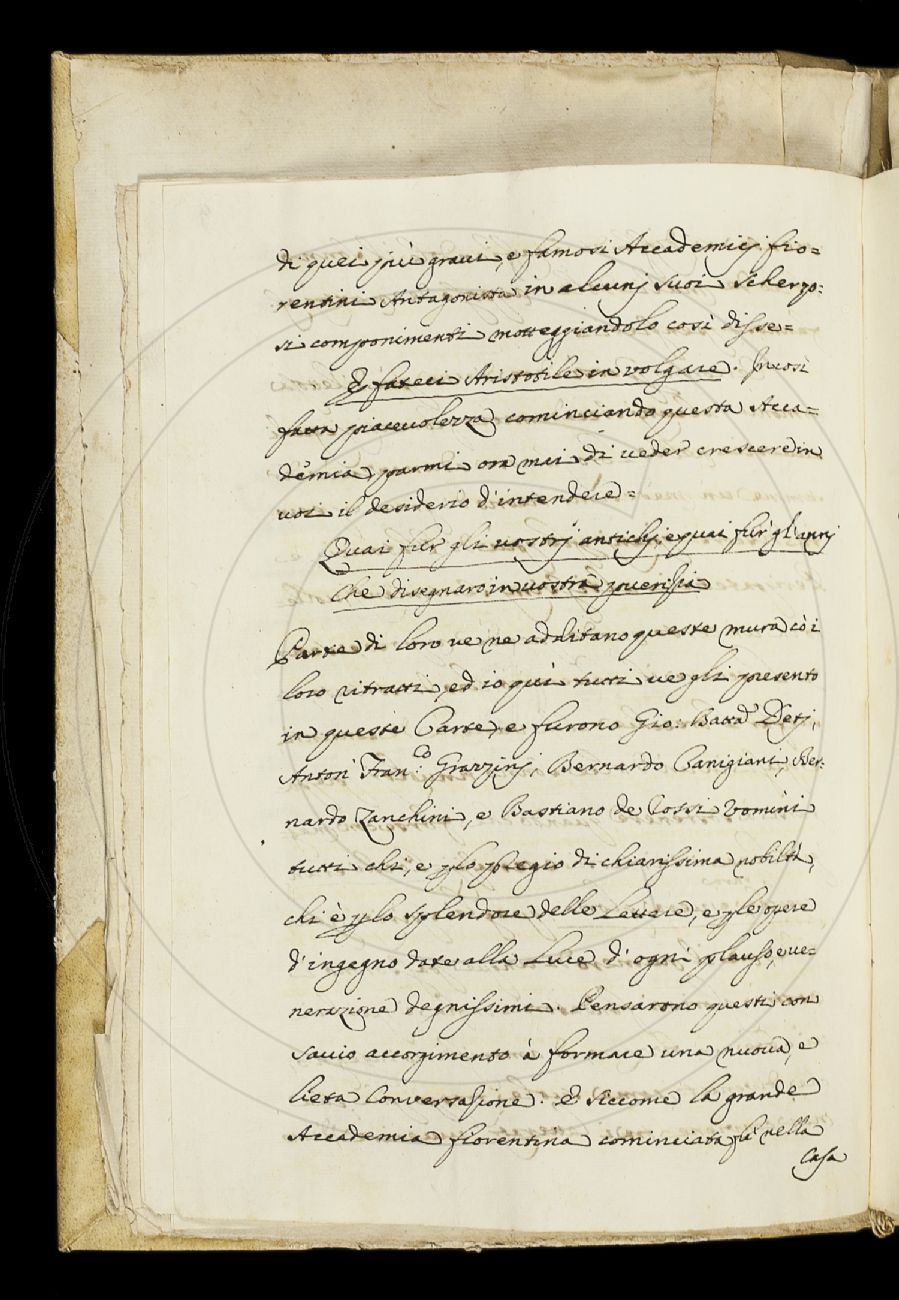 di quei più graui, e famosi Accademicj fio=
rentini Antagonista in alcunj suoi scherzo=
si componimenti motteggiandolo così disse=
E fateci Aristotile in volgare. In così
fatta piacevolezza cominciando questa Acca=
demia, parmi ora mai di veder crescere in
voi il desiderio d'intendere=
Quai fur gli vostrj antichj, e quai fur gl'annj
Che disegnaro in vostra puerisia
Parte di loro ve ne additano queste mura cò i
loro ritratti, ed io quì tutti ve gli presento
in queste Carte, e furono Gio: Batta Detj,
Anton Fran.co Grazzinj, Bernardo Canigiani, Ber=
nardo Zanchini, e Bastiano de Rossi Vomini
tutti chi, e plo pregio di chiarissima nobiltà,
chi è plo splendore delle Lettere, e ple opere
d'ingegno date alla Luce d'ogni plauso, e ve=
nerazione degnissimi. Pensarono questi con
savio accorgimento à formare una nuova, e
lieta Conversasione. E siccome la grande
Accademia fiorentina cominciata fù nella
Casa